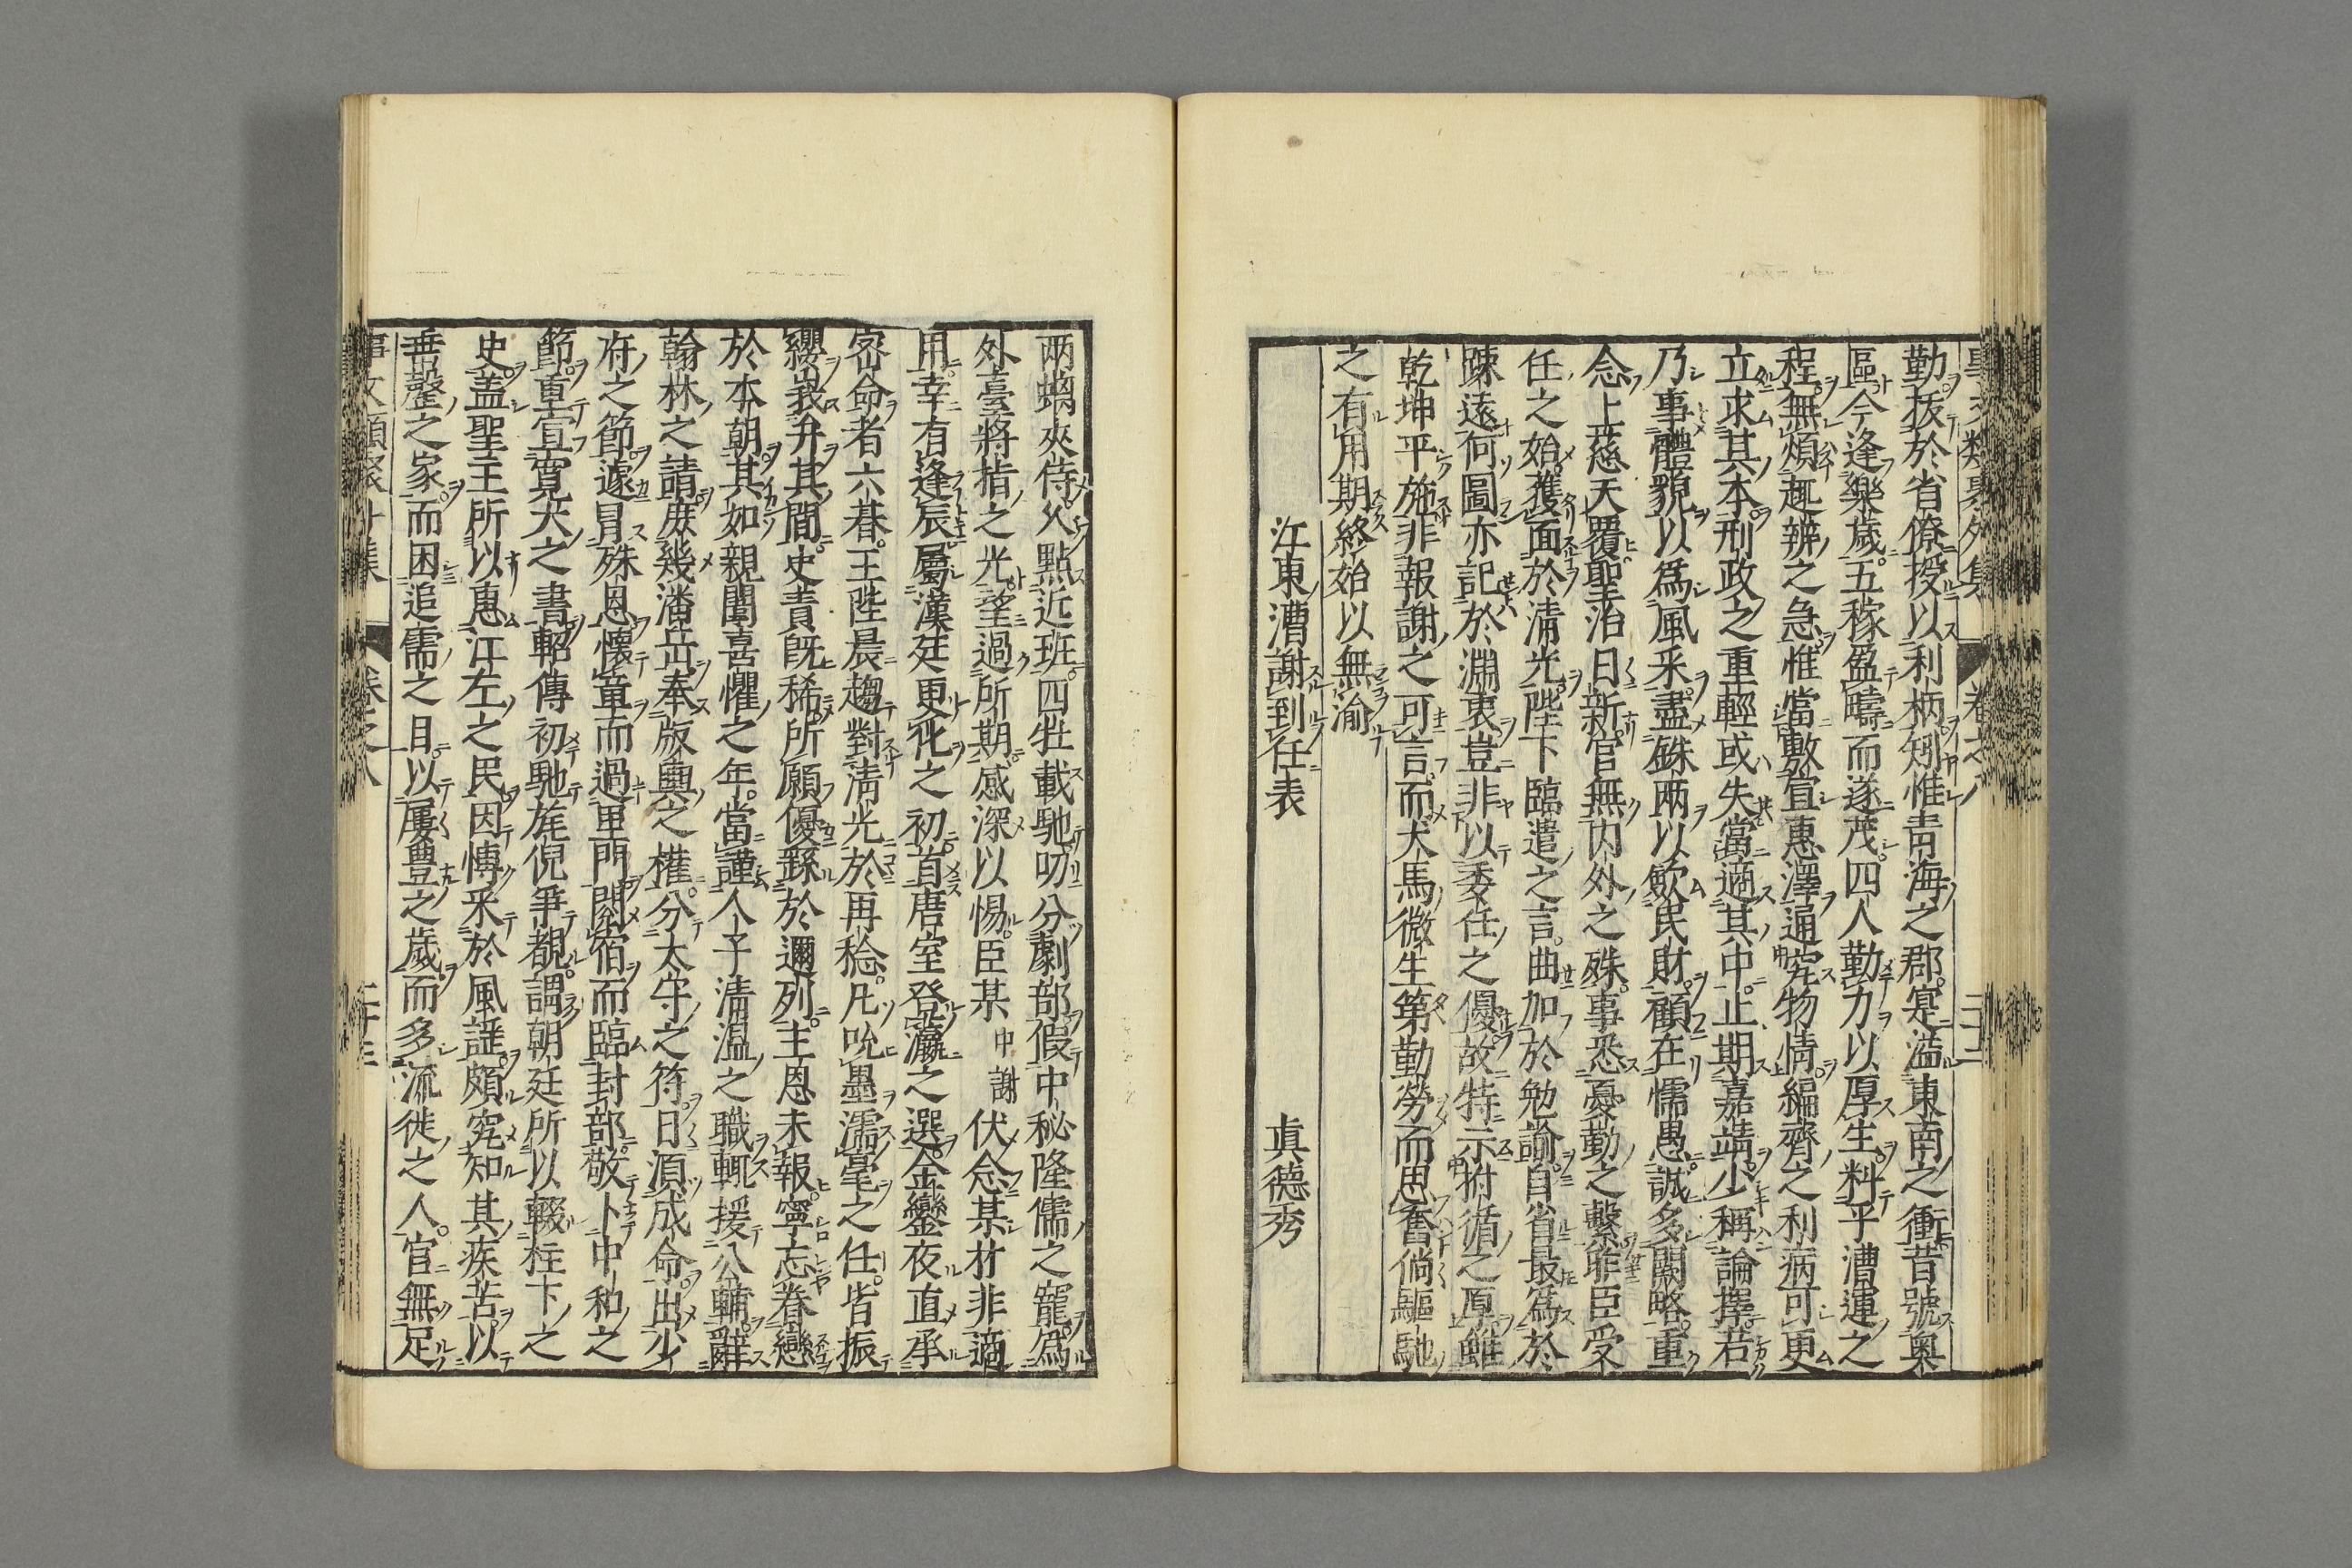 勤扳於省僚授以利柄矧惟青海之郡寔溢東南之衝昔號奥
區今逢樂歳五稼盈疇而遂茂四人勤力以厚生料乎漕運之
程無煩趣辨之急惟當敷宣惠澤通究物情編齊之利病可更
立求其本刑政之重輕或失當適其中止期嘉靖少稱論擇若
乃事體貌以爲風采盡銖兩以歛民財顧在懦愚誠多闕略重
念上慈天覆聖治日新官無内外之殊事悉憂勤之繫眇臣受
任之始獲面於清光陛下臨遣之言曲加於勉諭自省最爲於
踈遠何圖亦記於淵衷豈非以委任之優故特示拊循之厚雖
乾坤平施非報謝之可言而犬馬微生第勤勞而思奮倘驅馳
之有用期終始以無渝
江東漕謝到任表 真德秀
兩螭夾侍久點近班四牡載馳叨分劇部假中秘隆儒之寵爲
外臺將指之光望過所期感深以惕臣某中謝伏念某材非適
用幸有逢辰屬漢廷更化之初首唐室登瀛之選金鑾夜直承
密命者六朞王陛晨趨對清光於再稔凡吮墨濡毫之任皆振
纓峩弁其間史責旣稀所願優繇於邇列主恩未報寧忘眷戀
於本朝其如親闈喜懼之年當謹人子清温之職輒援公輔辭
翰林之請庶幾潘岳奉版輿之權分太守之符日湏成命出少
府之節遽冒殊恩懐章而過里門閟宿而臨封部敬卜中和之
節重宣寛大之書軺傳初馳旄倪爭覩謂朝廷所以輟柱下之
史盖聖主所以惠江左之民因愽采於風謡頗究知其疾苦以
垂罄之家而困追儒之目以屢豊之歳而多流徙之人官無足